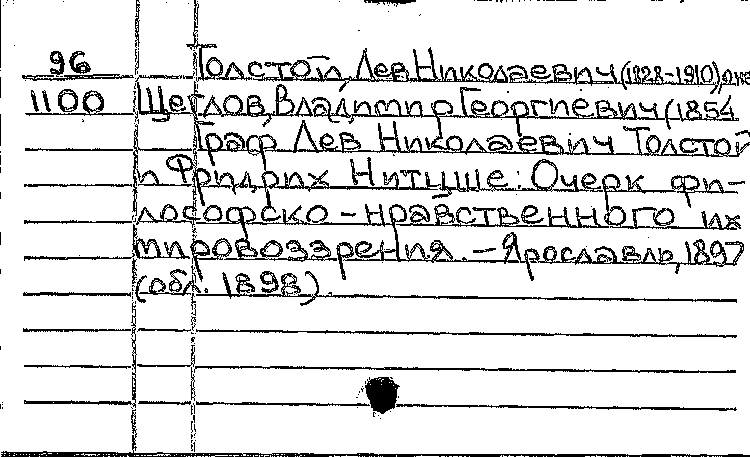 96 Толстой, Лев Николаевич (1828-1910), о не
1100 Щеглов, Владимир Георгиевич (1854
Граф Лев Николаевич Толстой
и Фридрих Нитцше: Очерк фи-
лософско-нравственного их
мировоззрения. – Ярославль, 1897
(обл. 1898).